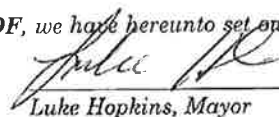 OF, we have hereunto set
Luke Hopkins, Mayor